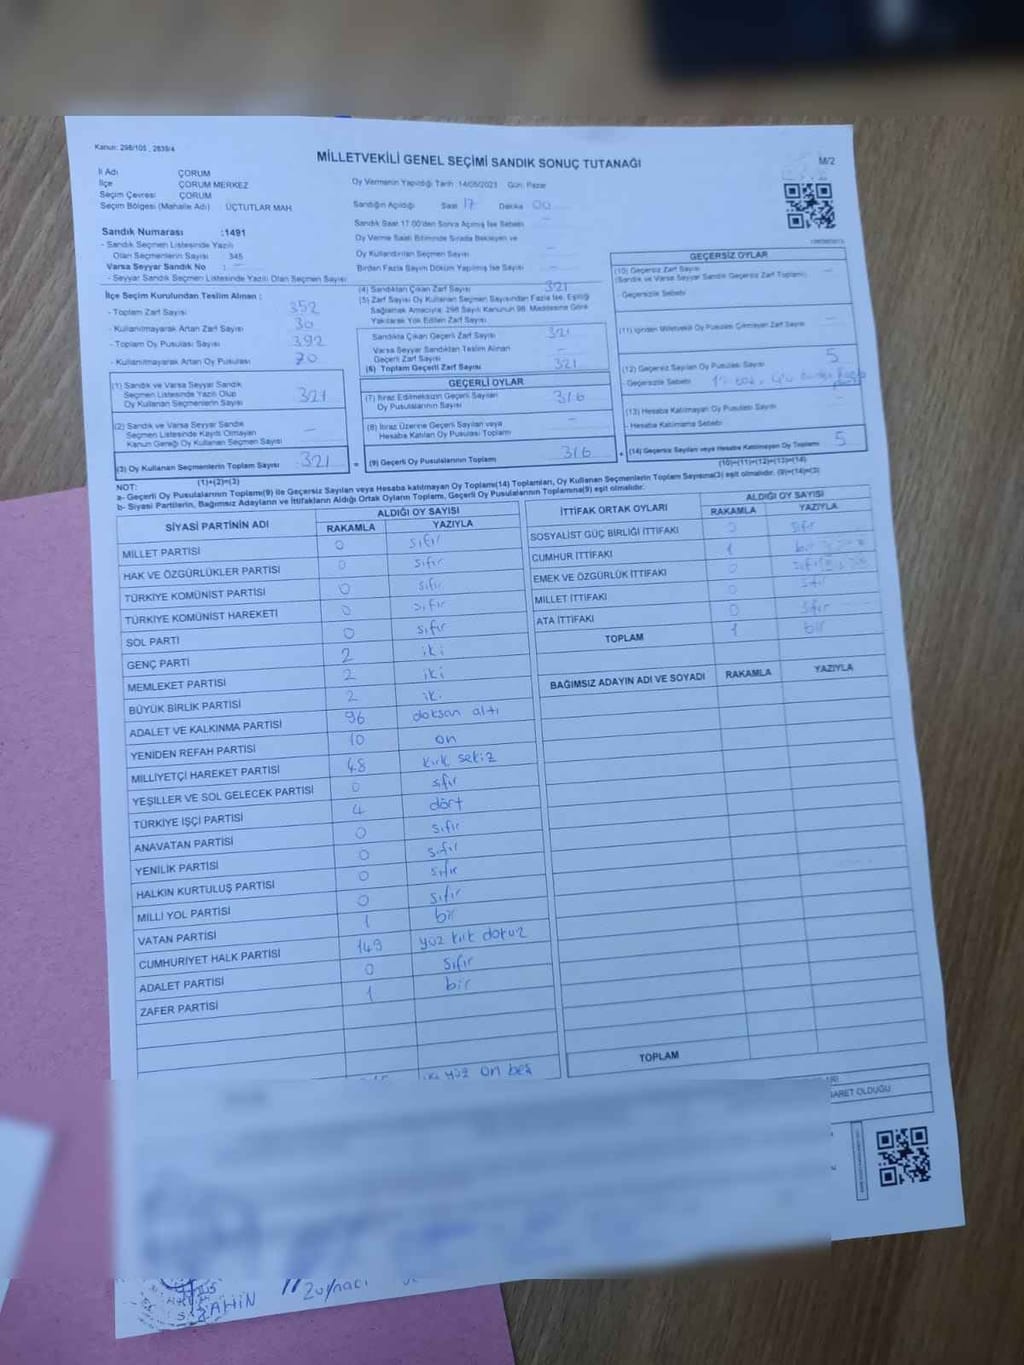 Kanun: 298/105 , 2839/4
MİLLETVEKİLİ GENEL SEÇİMİ SANDIK SONUÇ TUTANAĞI
M/2
İl Adı ÇORUM
İlçe ÇORUM MERKEZ
Seçim Çevresi ÇORUM
Seçim Bölgesi (Mahalle Adı) : ÜÇTUTLAR MAH.
Oy Vermenin Yapıldığı Tarih :14/05/2023 Gün: Pazar
Sandığın Açıldığı Saat 17 Dakika 00
Sandık Saat 17:00'den Sonra Açılmış İse Sebebi
Oy Verme Saati Bitiminde Sırada Bekleyen ve
Oy Kullandırılan Seçmen Sayısı
Birden Fazla Sayım Döküm Yapılmış İse Sayısı
Sandık Numarası :1491
- Sandık Seçmen Listesinde Yazılı
Olan Seçmenlerin Sayısı 345
Varsa Seyyar Sandık No :
- Seyyar Sandık Seçmen Listesinde Yazılı Olan Seçmen Sayısı
İlçe Seçim Kurulundan Teslim Alınan :
- Toplam Zarf Sayısı 352
- Kullanılmayarak Artan Zarf Sayısı 30
- Toplam Oy Pusulası Sayısı 392
- Kullanılmayarak Artan Oy Pusulası 70
(1) Sandık ve Varsa Seyyar Sandık
Seçmen Listesinde Yazılı Olup
Oy Kullanan Seçmenlerin Sayısı 321
(2) Sandık ve Varsa Seyyar Sandık
Seçmen Listesinde Kayıtlı Olmayan
Kanun Gereği Oy Kullanan Seçmen Sayısı –
(3) Oy Kullanan Seçmenlerin Toplam Sayısı 321
(1)+(2)=(3)
(4) Sandıktan Çıkan Zarf Sayısı 321
(5) Zarf Sayısı Oy Kullanan Seçmen Sayısından Fazla İse, Eşitliği
Sağlamak Amacıyla; 298 Sayılı Kanunun 98. Maddesine Göre
Yakılarak Yok Edilen Zarf Sayısı
Sandıkta Çıkan Geçerli Zarf Sayısı 321
Varsa Seyyar Sandıktan Teslim Alınan
Geçerli Zarf Sayısı –
(6) Toplam Geçerli Zarf Sayısı 321
GEÇERLİ OYLAR
(7) İtiraz Edilmeksizin Geçerli Sayılan
Oy Pusulalarının Sayısı 316
(8) İtiraz Üzerine Geçerli Sayılan veya
Hesaba Katılan Oy Pusulası Toplamı –
= (9) Geçerli Oy Pusulalarının Toplamı 316
GEÇERSİZ OYLAR
(10) Geçersiz Zarf Sayısı
(Sandık ve Varsa Seyyar Sandık Geçersiz Zarf Toplamı) –
- Geçersizlik Sebebi
(11) İçinden Milletvekili Oy Pusulası Çıkmayan Zarf Sayısı –
(12) Geçersiz Oy Pusulası Sayısı 5
- Geçersizlik Sebebi
(13) Hesaba Katılmayan Oy Pusulası Sayısı –
- Hesaba Katılmama Sebebi
+ (14) Geçersiz Sayılan veya Hesaba Katılmayan Oy Toplamı 5
(10)+(11)+(12)+(13)=(14)
NOT:
a- Geçerli Oy Pusulalarının Toplamı(9) ile Geçersiz Sayılan veya Hesaba Katılmayan Oy Toplamı(14) Toplamları, Oy Kullanan Seçmenlerin Toplam Sayısına(3) eşit olmalıdır. (9)+(14)=(3)
b- Siyasi Partilerin, Bağımsız Adayların ve İttifakların Aldığı Ortak Oyların Toplamı, Geçerli Oy Pusulalarının Toplamına(9) eşit olmalıdır.
SİYASİ PARTİNİN ADI ALDIĞI OY SAYISI
RAKAMLA YAZIYLA
MİLLET PARTİSİ 0 sıfır
HAK VE ÖZGÜRLÜKLER PARTİSİ 0 sıfır
TÜRKİYE KOMÜNİST PARTİSİ 0 sıfır
TÜRKİYE KOMÜNİST HAREKETİ 0 sıfır
SOL PARTİ 0 sıfır
GENÇ PARTİ 2 iki
MEMLEKET PARTİSİ 2 iki
BÜYÜK BİRLİK PARTİSİ 2 iki
ADALET VE KALKINMA PARTİSİ 96 doksan altı
YENİDEN REFAH PARTİSİ 10 on
MİLLİYETÇİ HAREKET PARTİSİ 48 kırk sekiz
YEŞİLLER VE SOL GELECEK PARTİSİ 0 sıfır
TÜRKİYE İŞÇİ PARTİSİ 4 dört
ANAVATAN PARTİSİ 0 sıfır
YENİLİK PARTİSİ 0 sıfır
HALKIN KURTULUŞ PARTİSİ 0 sıfır
MİLLİ YOL PARTİSİ 0 sıfır
VATAN PARTİSİ 1 bir
CUMHURİYET HALK PARTİSİ 149 yüz kırk dokuz
ADALET PARTİSİ 0 sıfır
ZAFER PARTİSİ 1 bir
yüz on beş
İTTİFAK ORTAK OYLARI ALDIĞI OY SAYISI
RAKAMLA YAZIYLA
SOSYALİST GÜÇ BİRLİĞİ İTTİFAKI 0 sıfır
CUMHUR İTTİFAKI 1 bir
EMEK VE ÖZGÜRLÜK İTTİFAKI 0 sıfır
MİLLET İTTİFAKI 0 sıfır
ATA İTTİFAKI 0 sıfır
TOPLAM 1 bir
BAĞIMSIZ ADAYIN ADI VE SOYADI RAKAMLA YAZIYLA
TOPLAM
OLDUĞU
ŞAHİN